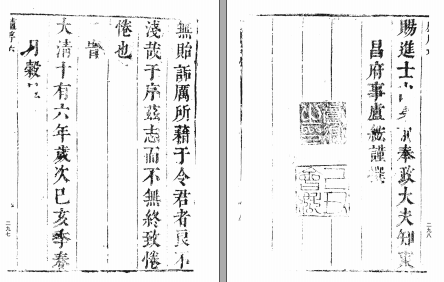 無貽詬厲所藉于令君者良不
淺哉于序茲志而不無終致惓
惓也
旹
大清十有六年歲次己亥季春
月穀
二九七
賜進士出身奉政大夫知東
昌府事盧紘謹撰
二九八